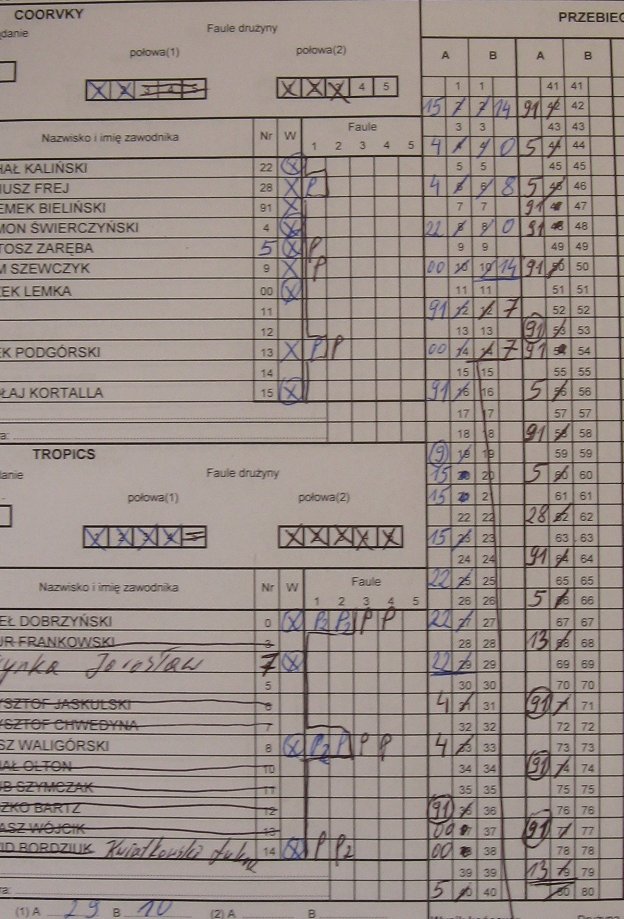 COORVKY
PRZEBIEG
Faule drużyny
połowa(1) połowa(2)
4 5
A B A B
Nazwisko i imię zawodnika Nr W Faule
1 2 3 4 5
KALIŃSKI 22 X
FREJ 28 X P
BIELIŃSKI 91 X
ŚWIERCZYŃSKI 4 X
ZARĘBA 5 X P
SZEWCZYK 9 X P
LEMKA 00 X
11
12
PODGÓRSKI 13 X P P
14
KORTALLA 15 X
TROPICS
Faule drużyny
połowa(1) połowa(2)
Nazwisko i imię zawodnika Nr W Faule
1 2 3 4 5
DOBRZYŃSKI 0 X P2 P2 P P
FRANKOWSKI 3
Jarosław 7 X
5
JASKULSKI 6
CHWEDYNA 7
WALIGÓRSKI 8 X P2 P P P
OLTON 10
SZYMCZAK 11
BARTZ 12
WÓJCIK 13
BORDZIUK Kwiatkowski 14 X P P2
(1) A 29 B 10 (2) A B
1 1 41 41
15 2 2 14 91 42 42
3 3 43 43
4 4 4 0 5 44 44
5 5 45 45
4 6 6 8 5 46 46
7 7 91 47 47
22 8 8 0 91 48 48
9 9 49 49
00 10 10 14 91 50 50
11 11 51 51
91 12 12 7 52 52
13 13 91 53 53
00 14 14 7 91 54 54
15 15 55 55
91 16 16 5 56 56
17 17 57 57
18 18 91 58 58
9 19 19 59 59
15 20 20 5 60 60
15 21 2 61 61
22 22 28 62 62
15 23 23 63 63
24 24 91 64 64
22 25 25 65 65
26 26 5 66 66
22 27 27 67 67
28 28 13 68 68
22 29 29 69 69
30 30 70 70
4 31 31 91 71 71
32 32 72 72
4 33 33 73 73
34 34 91 74 74
35 35 75 75
91 36 36 76 76
00 37 37 91 77 77
00 38 38 78 78
39 39 13 79 79
5 40 40 80 80